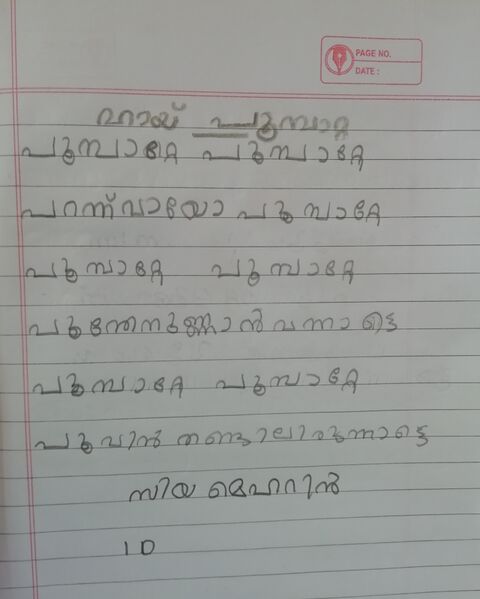 PAGE NO.
DATE :
ഹായ് പൂമ്പാറ്റ
പൂമ്പാറ്റേ പൂമ്പാറ്റേ
പറന്ന് വായോ പൂമ്പാറ്റേ
പൂമ്പാറ്റേ പൂമ്പാറ്റേ
പൂന്തേനുണ്ണാൻ വന്നാട്ടെ
പൂമ്പാറ്റേ പൂമ്പാറ്റേ
പൂവിൻ തണ്ടിലിരുന്നാട്ടെ
സിയ മെഹറിൻ
1 D